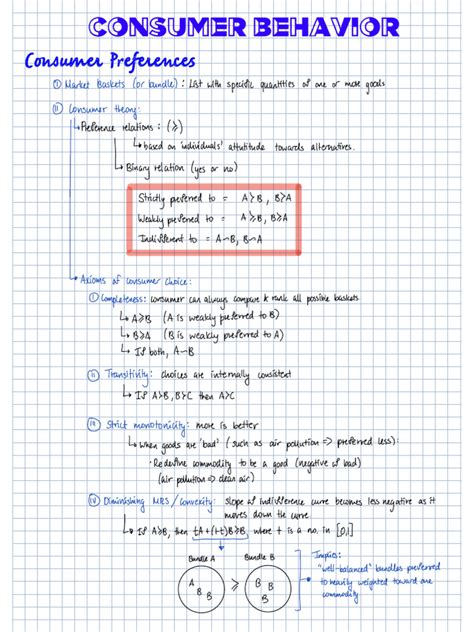 CONSUMER BEHAVIOR
Consumer Preferences
① Market Baskets (or bundle) : List with specific quantities of one or more goods
② Consumer theory:
↳ Preference relations : (≽)
↳ based on individuals' attutitude towards alternatives.
↳ Binary relation (yes or no)
Strictly preferred to = A≻B , B≻A
Weakly preferred to = A≽B, B≽A
Indifferent to = A~B, B~A
↳ Axioms of consumer choice:
ⓘ Completeness: consumer can always compare & rank all possible baskets
↳ A≽B (A is weakly preferred to B)
↳ B≽A (B is weakly preferred to A)
↳ If both, A~B
ⓘⓘ Transitivity: choices are internally consistent
↳ If A≻B, B≻C then A≻C
ⓘⓘⓘ Strict monotonicity: more is better
↳ When goods are 'bad' (such as air pollution => preferred less):
· Redefine commodity to be a good (negative of bad)
(air pollution => clean air)
ⓘⓥ Diminishing MRS / Convexity: slope of indifference curve becomes less negative as it
moves down the curve
↳ If A≽B, then tA + (1-t)B≽B where t is a no. in [0,1]
Bundle A
Bundle B
A B B
≻
B B B
Implies:
"well-balanced" bundles preferred
to heavily weighted toward one
commodity